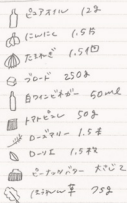 ピュアオイル 12g
にんにく 1.5片
たまねぎ 1.5個
ブロード 250g
白ワインビネガー 50ml
トマトピューレ 50g
ローズマリー 1.5本
ローリエ 1.5枚
ピーナッツバター 大さじ2
ほうれん草 75g